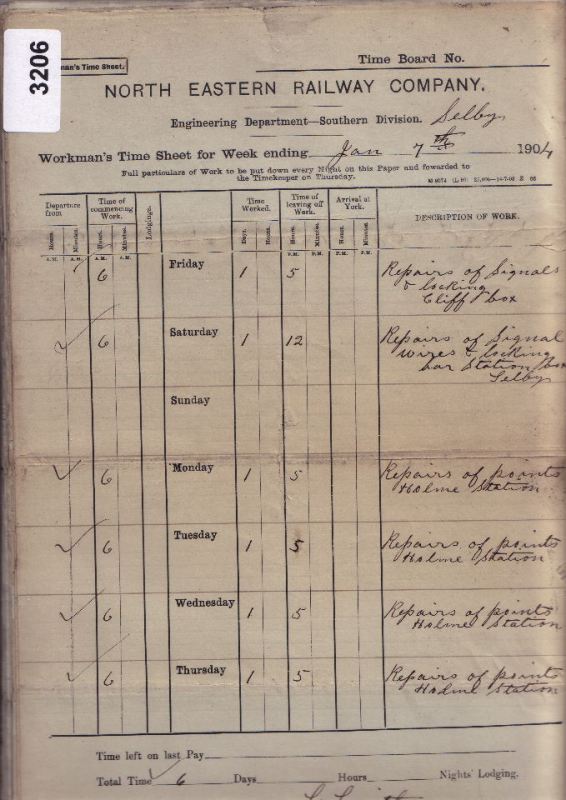 3206
man's Time Sheet.
Time Board No.
NORTH EASTERN RAILWAY COMPANY.
Engineering Department—Southern Division. Selby
Workman's Time Sheet for Week ending Jan 7th 1904
Full particulars of Work to be put down every Night on this Paper and fowarded to
the Timekeeper on Thursday.
Departure from
Time of commencing Work.
Lodgings.
Time Worked.
Time of leaving off Work.
Arrival at York.
DESCRIPTION OF WORK.
Hours. Minutes. Hours. Minutes. Days. Hours. Hours. Minutes. Hours. Minutes.
A.M. A.M. A.M. A.M. P.M. P.M. P.M. P.M.
6 Friday 1 5 Repairs of Signals
& locking
Cliff box
6 Saturday 1 12 Repairs of Signal
wires & locking
bar Station box
Selby
Sunday
6 Monday 1 5 Repairs of points
Holme Station
6 Tuesday 1 5 Repairs of points
Holme Station
6 Wednesday 1 5 Repairs of points
Holme Station
6 Thursday 1 5 Repairs of points
Holme Station
Time left on last Pay
Total Time 6 Days Hours Nights' Lodging.